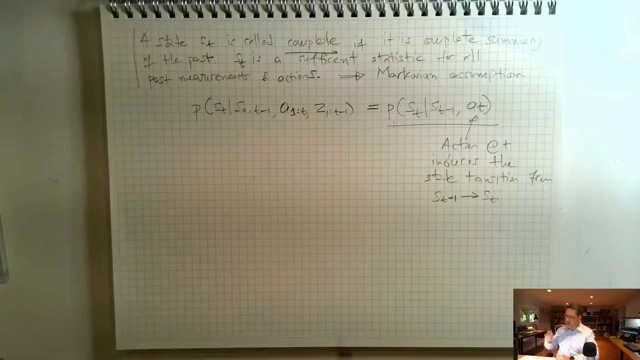 A state St is called complete if it is complete summary
of the past St is a sufficient statistic for all
past measurements & actions. ⟹ Markovian assumption
p(St | S0:t-1, a1:t, z1:t-1) = p(St | St-1, at)
Action @ t
induces the
state transition from
St-1 → St